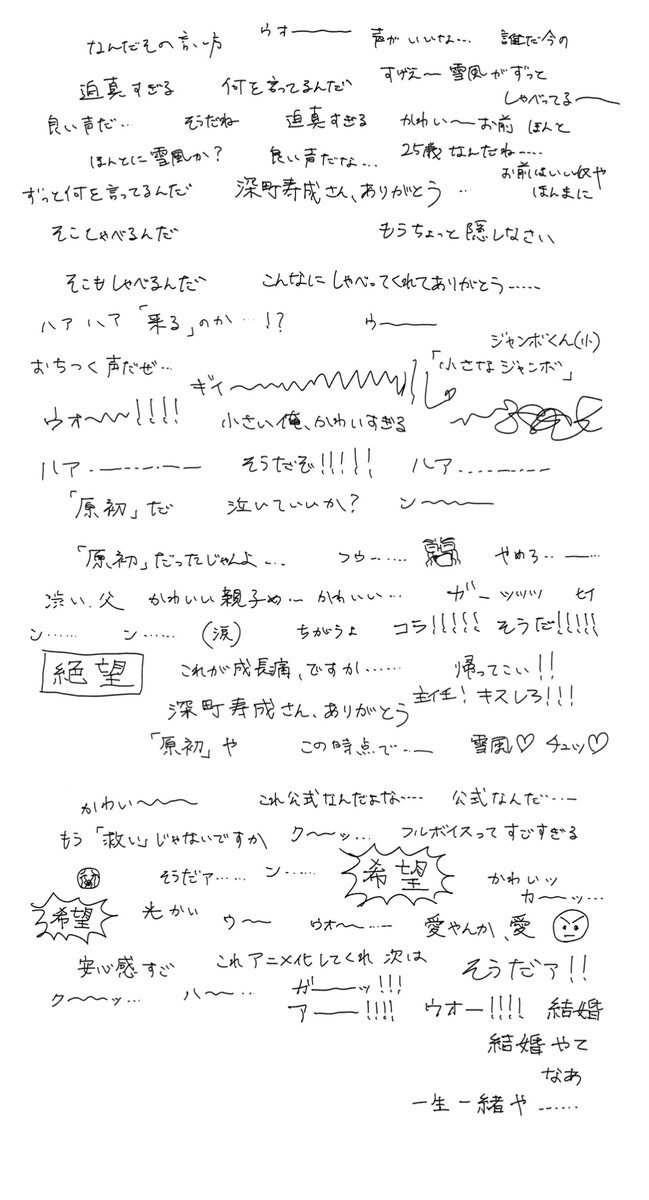 なんだその言い方 ウオ――― 声がいいな… 誰だ今の
迫真すぎる 何を言ってるんだ すげえ〜雪風がずっと
しゃべってる〜
良い声だ… そうだね 迫真すぎる かわい〜お前 ほんと
ほんとに雪風か? 良い声だな… 25歳なんだね…
ずっと何を言ってるんだ 深町寿成さん、ありがとう … お前はいい奴や
ほんまに
そこしゃべるんだ もうちょっと隠しなさい
そこもしゃべるんだ こんなにしゃべってくれてありがとう……
ハア ハア「来る」のか…!? ウ〜――
ジャンボくん(小)
おちつく声だぜ… 「小さなジャンボ」
ギイ〜〜〜
ウオ〜〜!!!! 小さい俺、かわいすぎる
ハア…――… そうだぞ!!!!! ハア………
「原初」だ 泣いていいか? ン〜――
「原初」だったじゃんよ… フゥ…… やめろ…―…
渋い、父 かわいい親子め… かわいい… ガーッッッ
ン…… ン…… (涙) ちがうよ コラ!!!!! そうだ!!!!!
絶望 これが成長痛、ですか…… 帰ってこい!!
深町寿成さん、ありがとう 主任!キスしろ!!!
「原初」や この時点で…― 雪風♡ チュッ♡
かわい〜〜〜 これ公式なんだよな…… 公式なんだ…
もう「救い」じゃないですか ク〜〜ッ… フルボイスってすごすぎる
そうだァ…… ン…… 希望 かわいッ
カ〜ーッ…
希望 ウ〜〜 ウオ〜…… 愛やんか、愛
安心感すご これアニメ化してくれ 次は そうだァ!!
ク〜〜ッ… ハ〜〜… ガ――ッ!!!
アー――!!!! ウオー!!!! 結婚
結婚やて
なあ
一生一緒や……